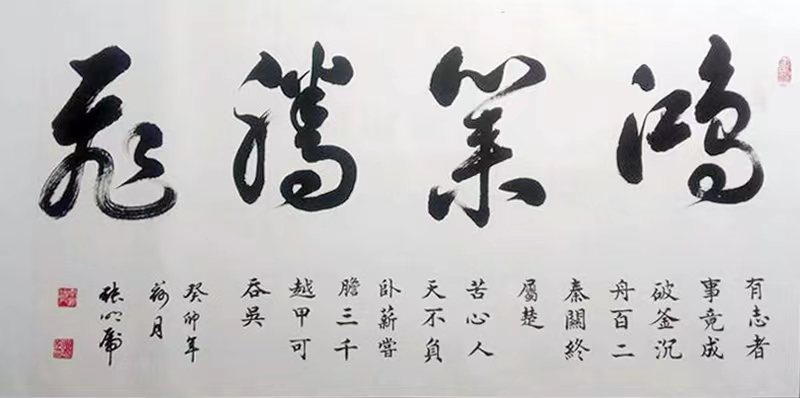 鴻業騰飛
有志者
事竟成
破釜沉
舟百二
秦關終
屬楚
苦心人
天不負
卧薪嘗
膽三千
越甲可
吞吳
癸卯年
荷月